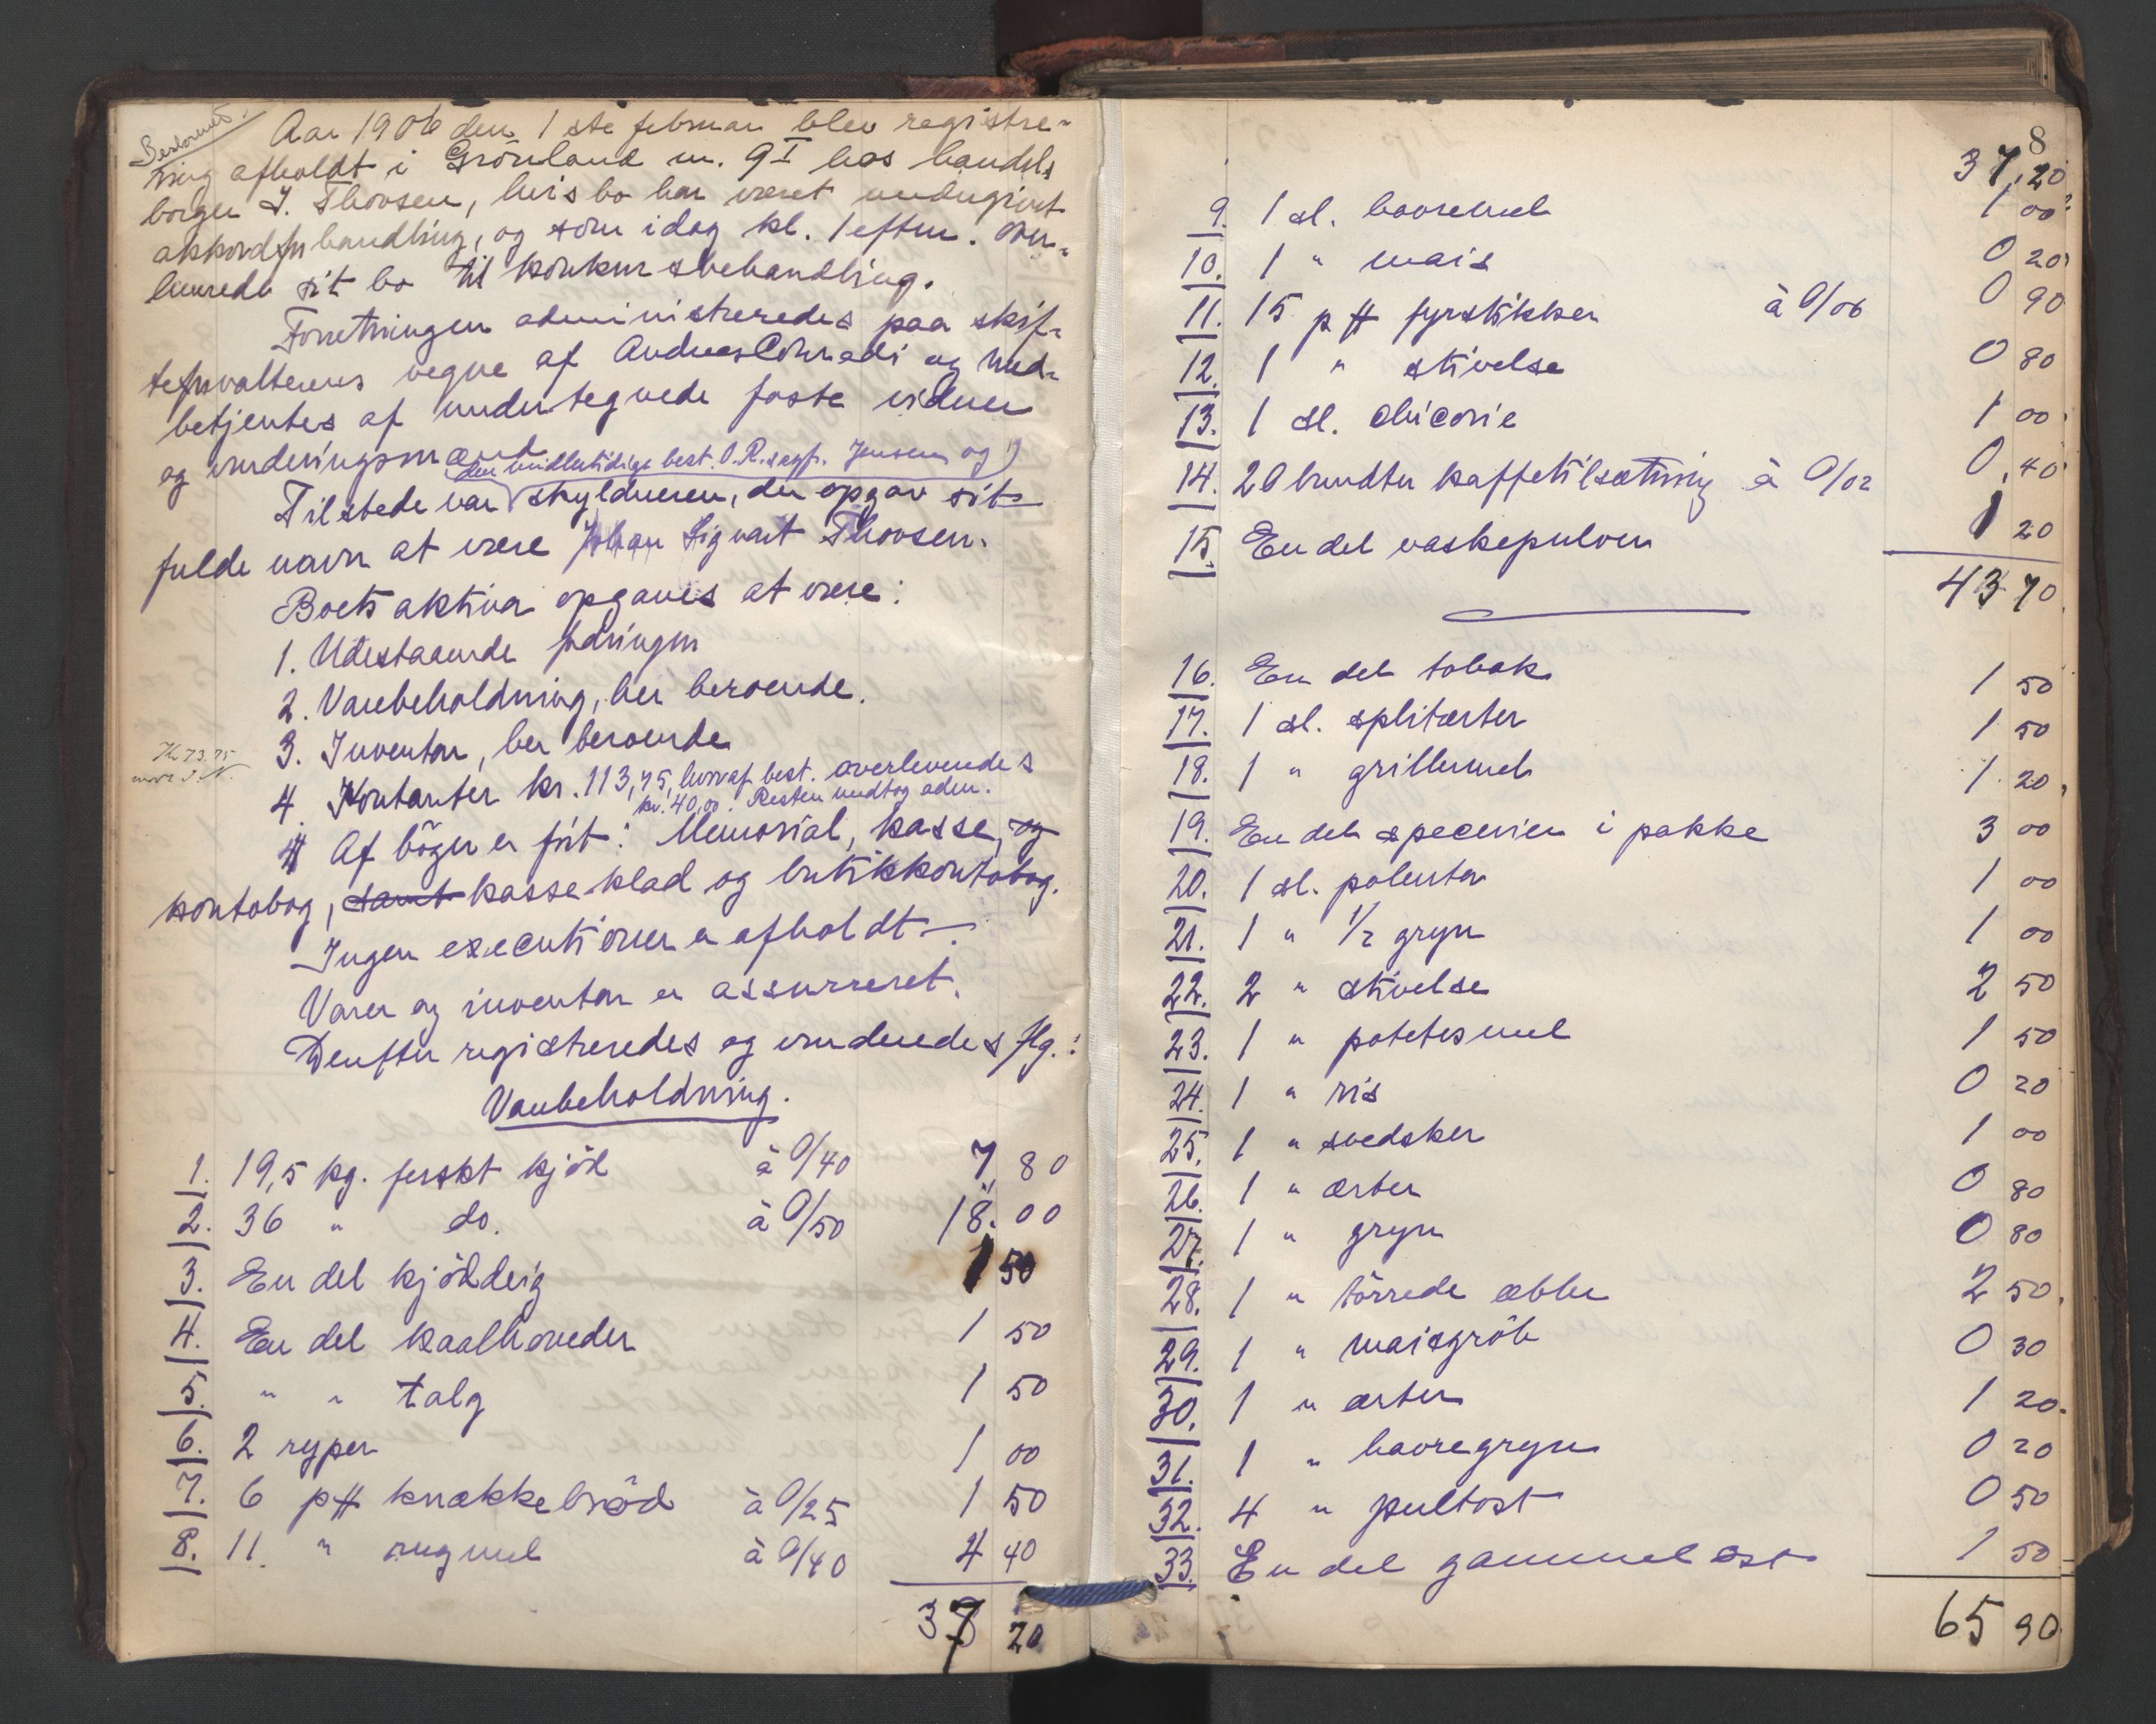 Aar 1906 den 1ste februar blev registre-
ring afholdt i Grönland nr. 9 I hos handels
borger J. Thovsen, hvis bo har været undergivet
akkordforhandling, og som idag kl. 1 efterm. over-
leverede sit bo til konkursbehandling.
Forretningen administreredes paa skif-
teforvalterens vegne af Andreas Conradi og med-
betjentes af undertegnede faste vidner
og vurderingsmænd
den midlertidige best. O.R.sagf. Jensen og
Tilstede var skyldneren, der opgav sit
fulde navn at være Johan Sigvart Thovsen.
Boets aktiva opgaves at være:
1. Udestaaende fordringer
2. Varebeholdning, her beroende.
3. Inventar, her beroende
4. Kontanter kr. 113,75, hvoraf best. overlevendes
kr. 40,00. Resten modtog adm.
Kr 73.75
Af böger er fört: Memorial, kasse, og
kontobog, samt kasseklad og butikkontobog.
Ingen executioner er afholdt.
Varer og inventar er assurreret.
Derefter registreredes og vurderedes flg.:
Varebeholdning.
1. 19,5 kg. ferskt kjöd à 0/40 7,80
2. 36 " do. à 0/50 18.00
3. En del kjöddeig 1 50
4. En del kaalhoveder 1 50
5. " " talg 1 50
6. 2 ryper 1 00
7. 6 pk knækkebröd à 0/25 1 50
8. 11 " rugmel à 0/40 4 40
37 20
8
37,20
9. 1 sk. havremel 1 00
10. 1 " mais 0 20
11. 15 pk fyrstikker à 0/06 0 90
12. 1 " stivelse 0 80
13. 1 sk. chicorie 1 00
14. 20 bundter kaffetilsætning à 0/02 0,40
15. En del vaskepulver 1 20
43 70
16. En del tobak 1 50
17. 1 sk. splitærter 1 50
18. 1 " grillermel 1 20
19. En del specerier i pakke 3 00
20. 1 sk. polenta 1 00
21. 1 " 1/2 gryn 1 00
22. 2 " stivelse 2 50
23. 1 " potetesmel 1 50
24. 1 " ris 0 20
25. 1 " svedsker 1 00
26. 1 " ærter 0 80
27. 1 " gryn 0 80
28. 1 " törrede æbler 2 50
29. 1 " maisgröb 0 30
30. 1 " ærter 1 20
31. 1 " havregryn 0 20
32. 4 " pultost 0 50
33. En del gammelost 1 50
65 90